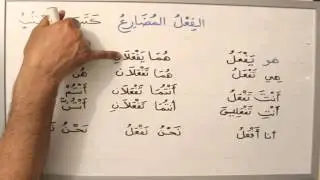 الفِعْلُ المُضَارِعُ
هو يَفْعَلُ هُمَا يَفْعَلَانِ
هِيَ تَفْعَلُ هُمَا تَفْعَلَانِ هُنَّ
أَنْتَ تَفْعَلُ أَنْتُمَا تَفْعَلَانِ أَنْتُمْ
أَنْتِ تَفْعَلِينَ أَنْتُمَا تَفْعَلَانِ أَنْتُنَّ
أنا أَفْعَلُ نَحْنُ نَفْعَلُ نَحْنُ نَفْعَلُ